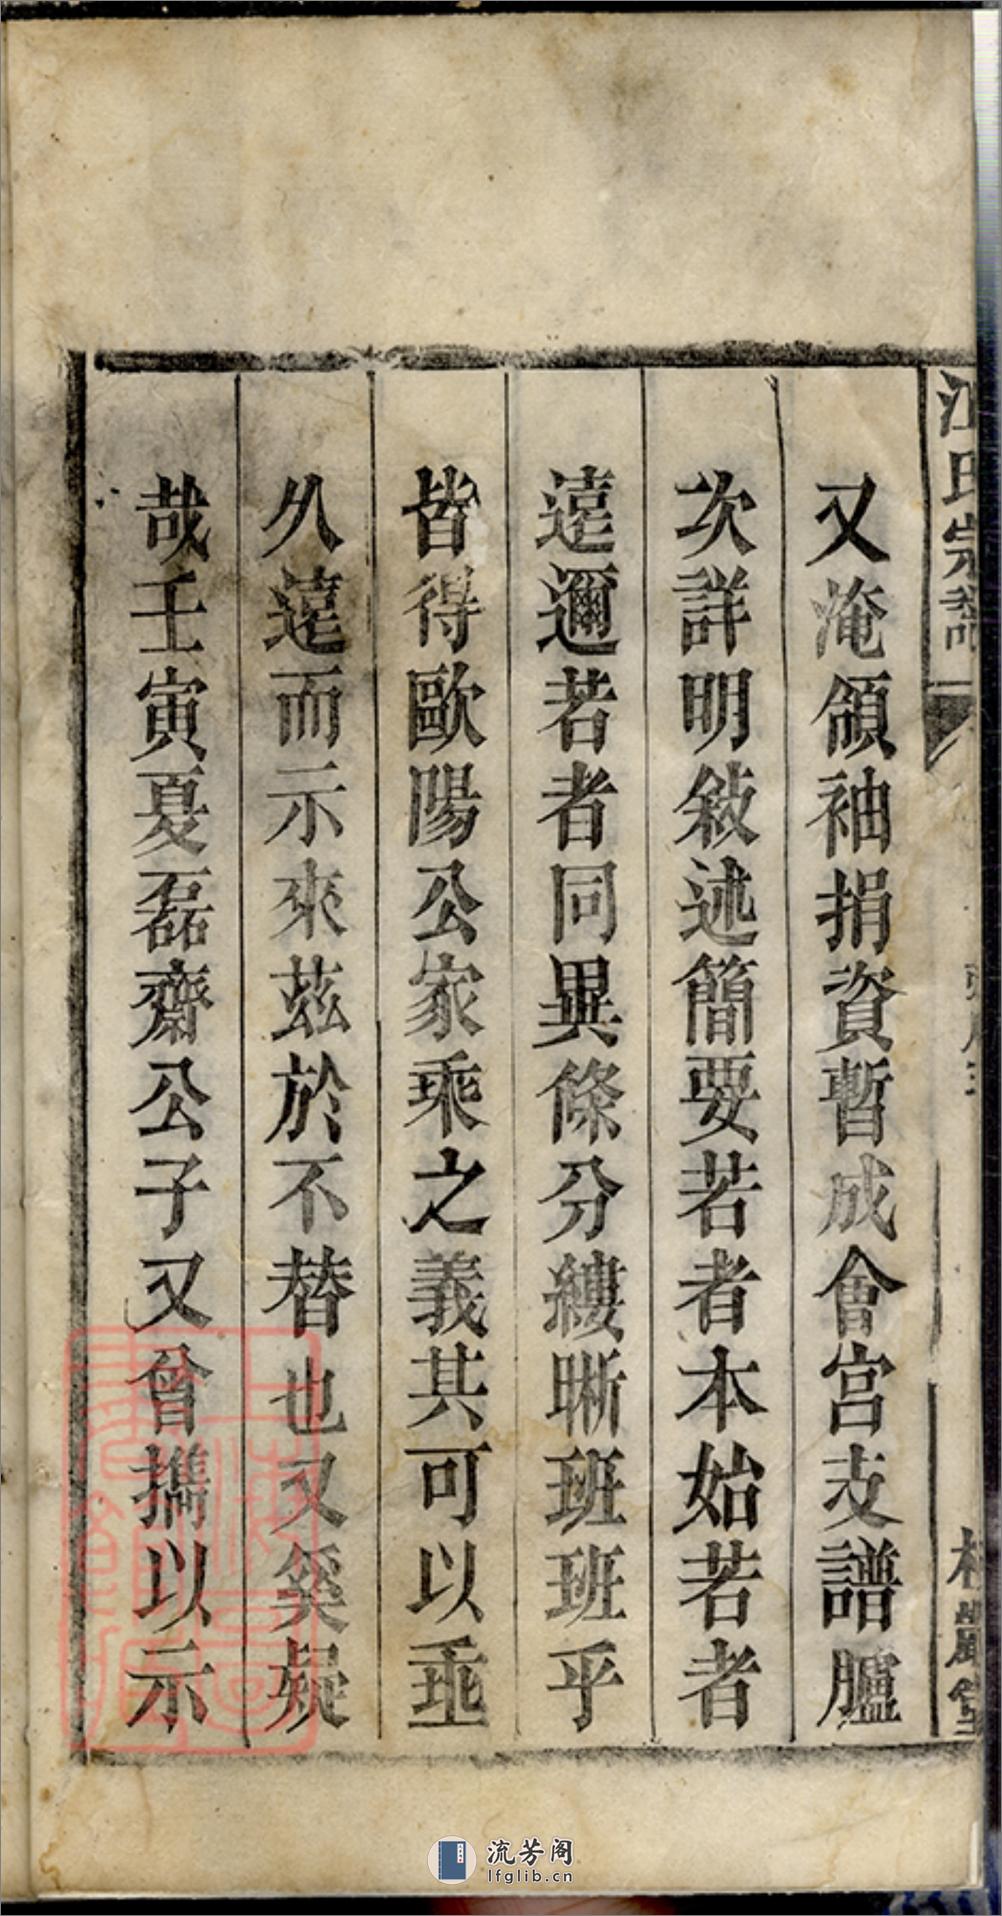 江氏宗譜
又淹領袖捐資暫成會宮支譜臚
次詳明敘述簡要若者本始若者
遠邇若者同異條分縷晰班班乎
皆得歐陽公家乘之義其可以垂
久遠而示來茲於不替也又奚疑
哉壬寅夏磊齋公子又曾攜以示
流芳阁
lfglib.cn